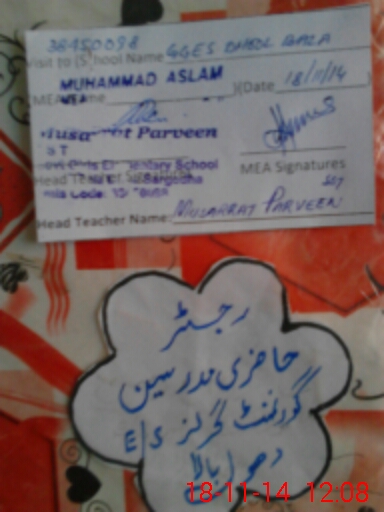 38450098
Visit to (School Name GGES DHOOL BALA
MUHAMMAD ASLAM
MEA Name )(Date 18/11/14)
Musarrat Parveen
S T
Elementary School
Head Teacher Signatures MEA Signatures
Sargodha
Code:
Head Teacher Name: MUSARRAT PARVEEN
رجسٹر
حاضری مدرسین
گورنمنٹ گرلز E/S
دھول بالا
18-11-14 12:08